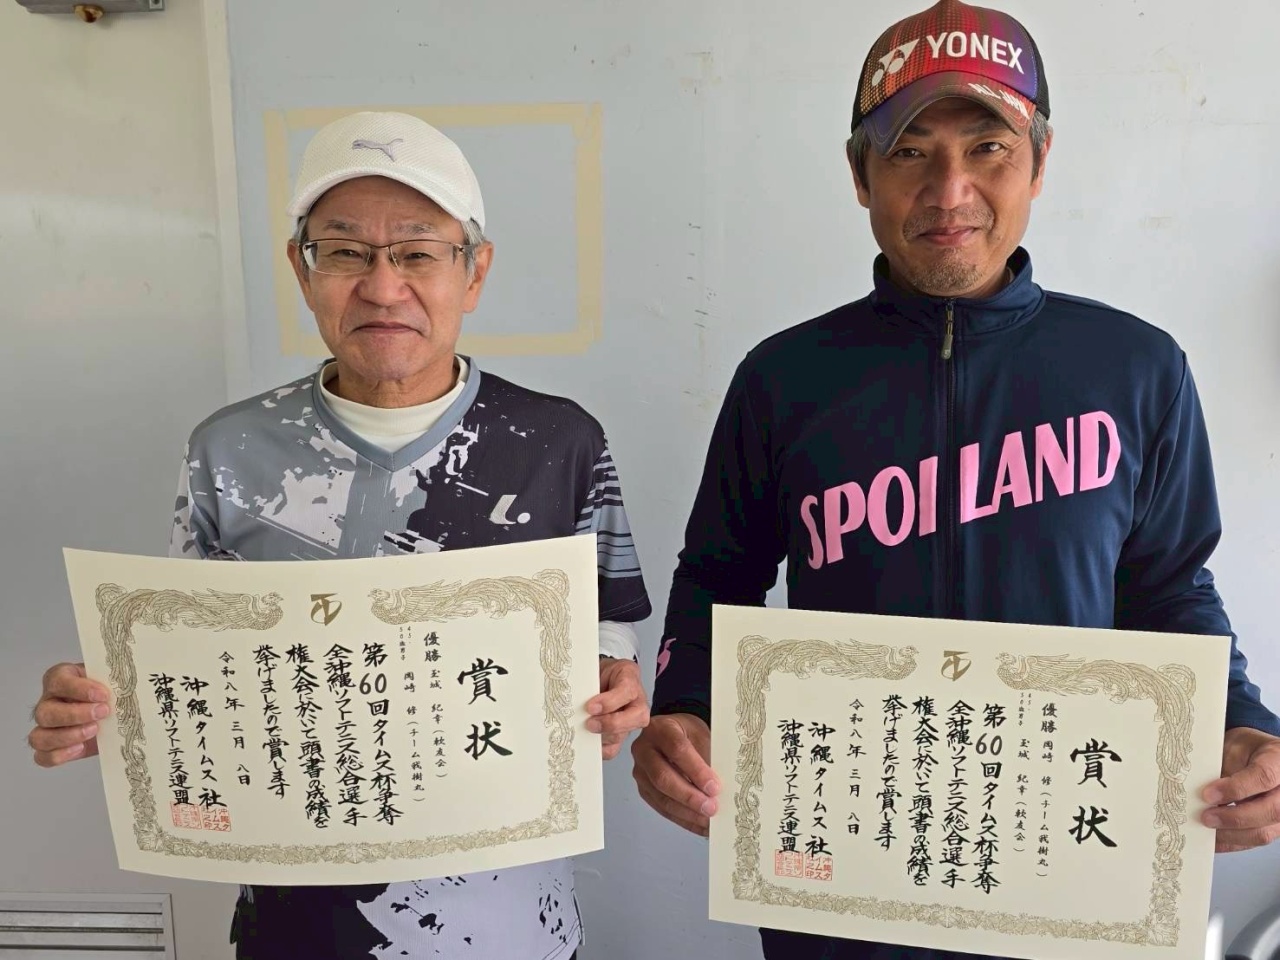 YONEX
ALL JAPAN
SPORLAND
賞状
優勝 玉城 紀幸（軟友会）
岡崎 修（チーム我樹丸）
第60回タイムス杯争奪
全沖縄ソフトテニス総合選手
権大会に於いて頭書の成績を
挙げましたので賞します
令和八年三月八日
沖縄タイムス社
沖縄県ソフトテニス連盟
賞状
優勝 岡崎 修（チーム我樹丸）
玉城 紀幸（軟友会）
第60回タイムス杯争奪
全沖縄ソフトテニス総合選手
権大会に於いて頭書の成績を
挙げましたので賞します
令和八年三月八日
沖縄タイムス社
沖縄県ソフトテニス連盟